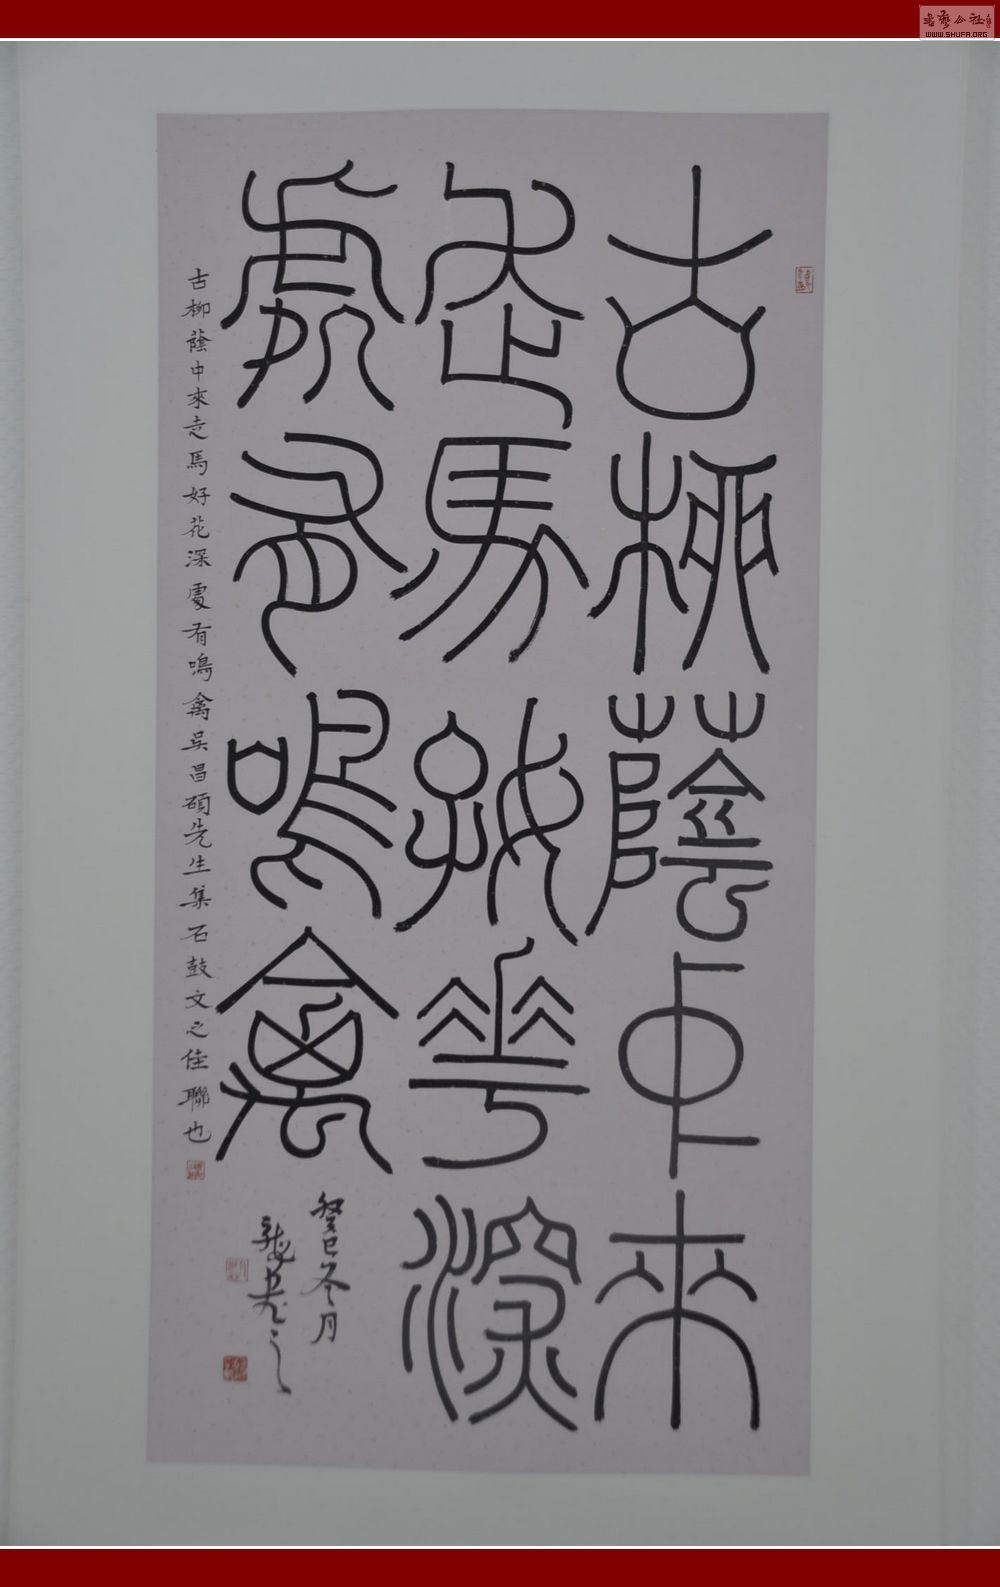 古柳蔭中來
走馬好花深
處有鳴禽
古柳蔭中來走馬好花深處有鳴禽吳昌碩先生集石鼓文之佳聯也
癸巳冬月
書之
書藝公社
WWW.SHUFA.ORG